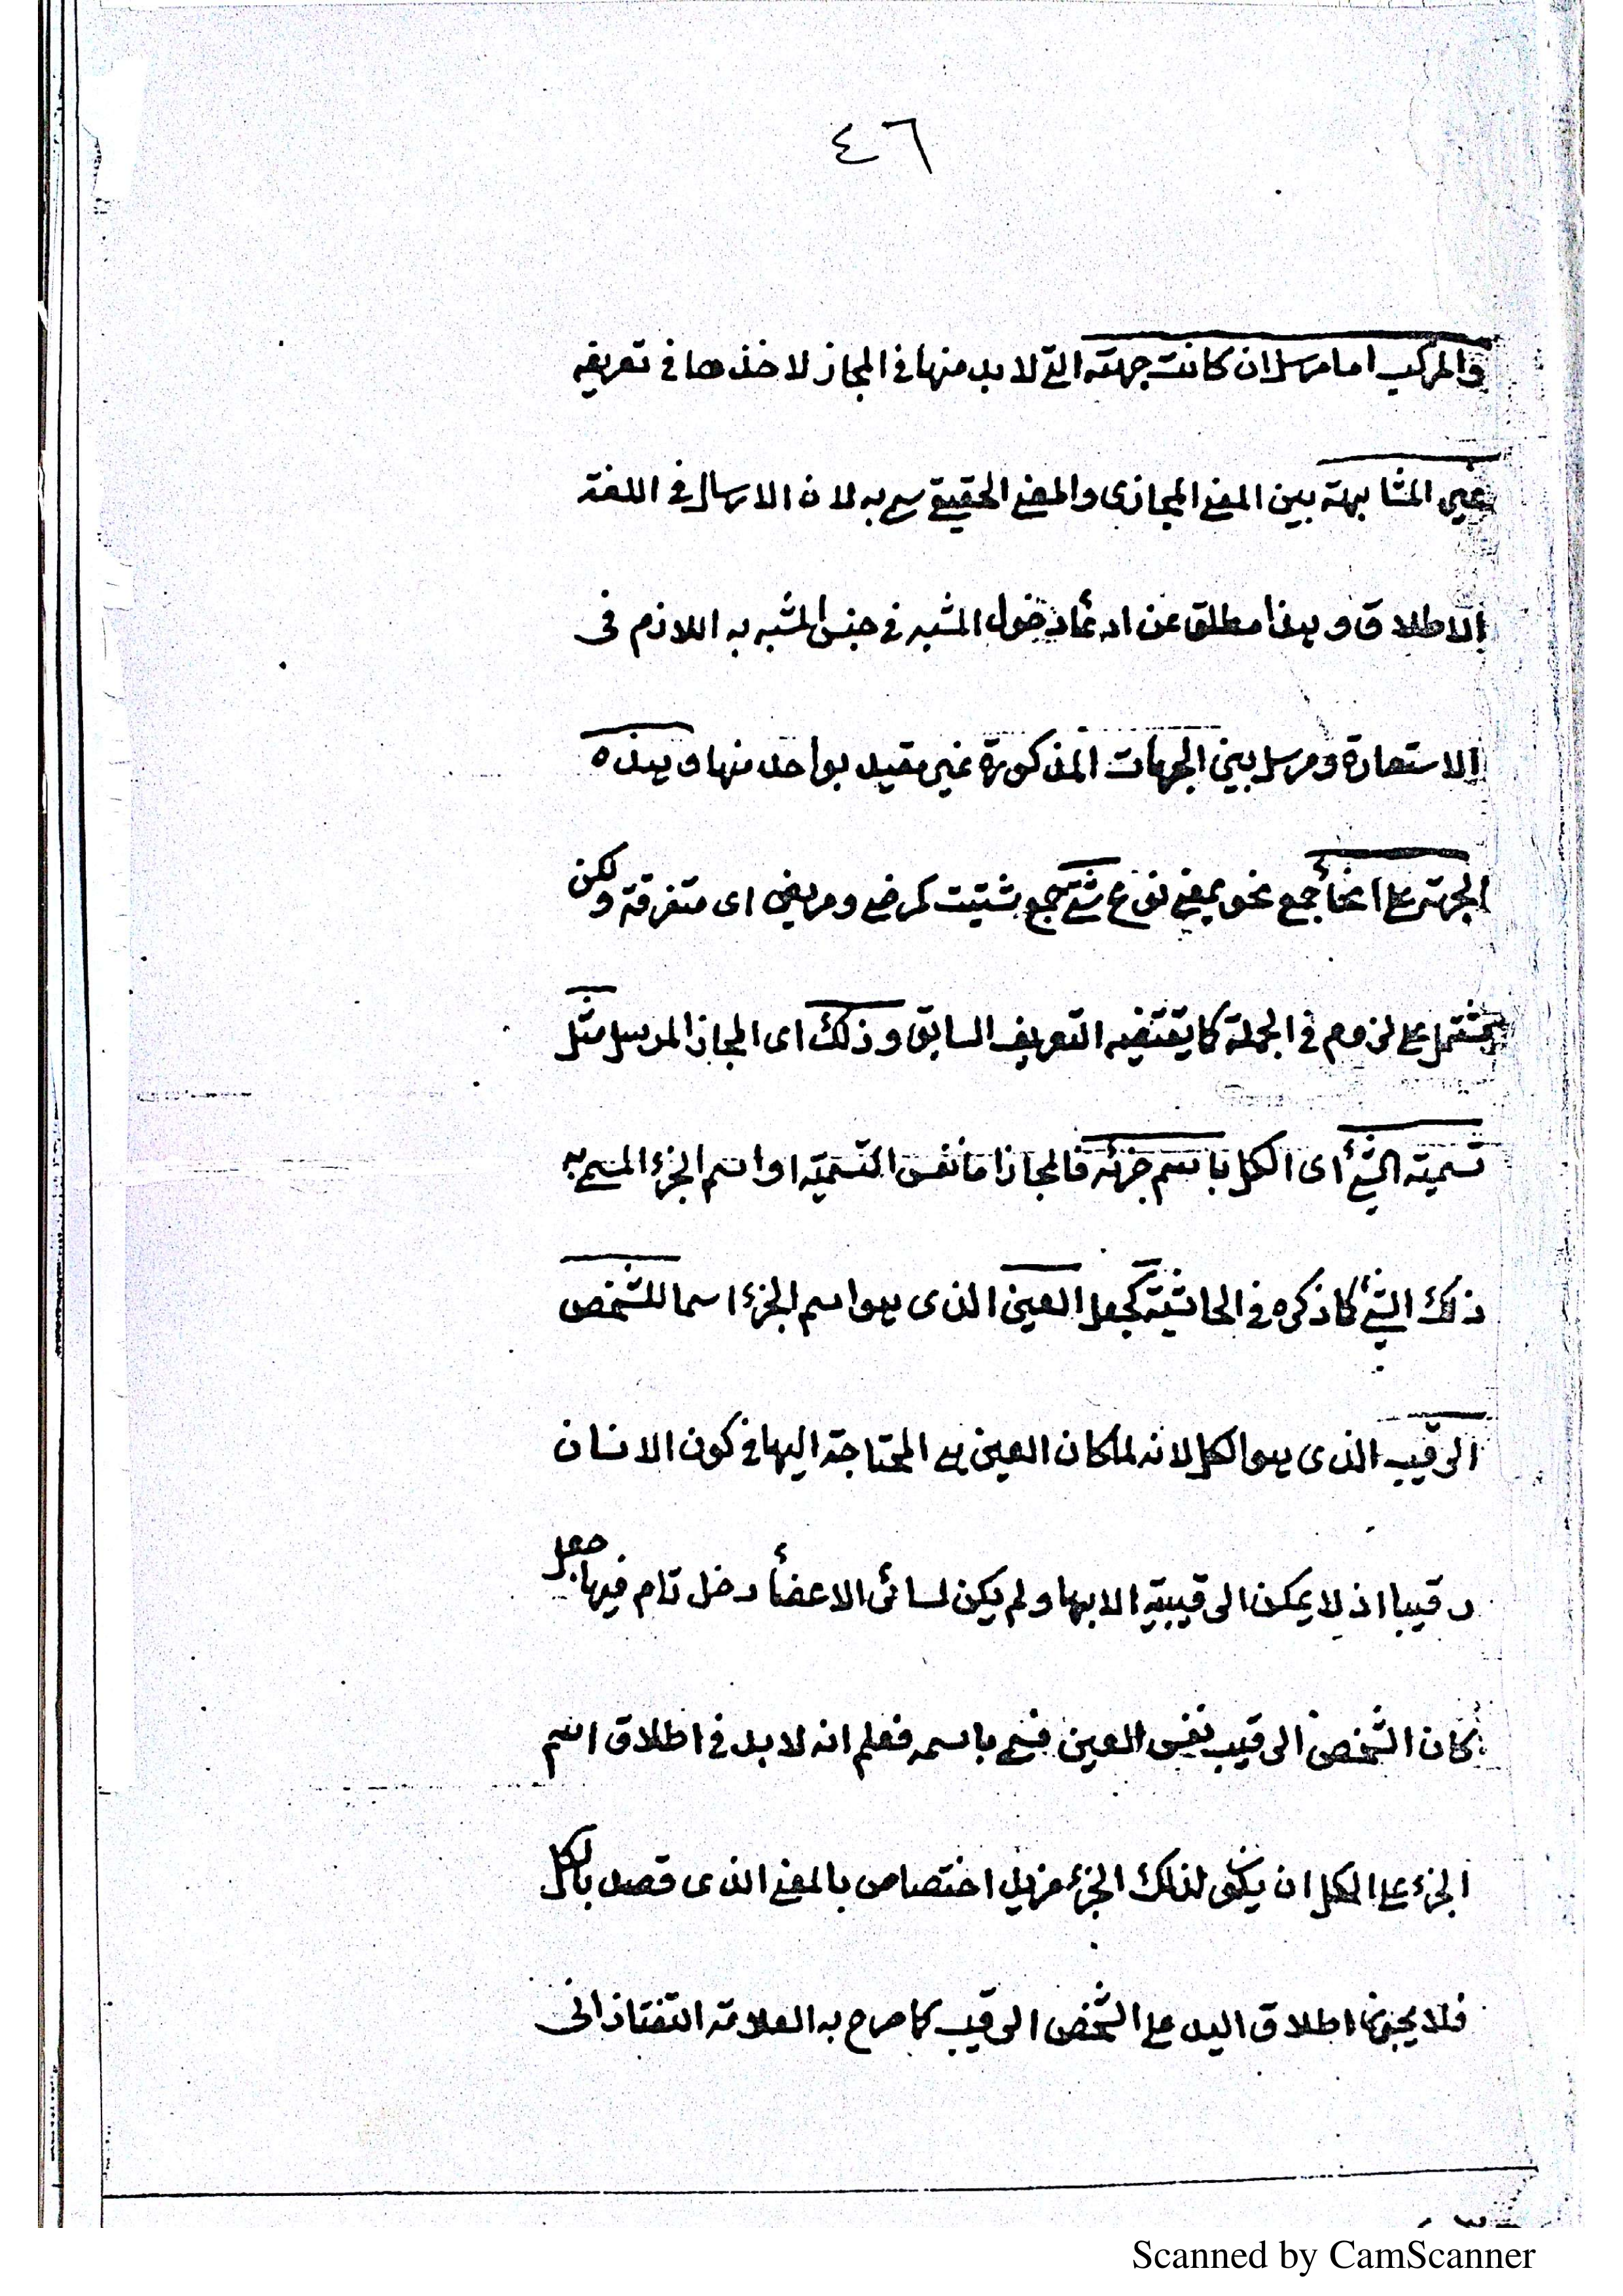 ٤٦
والمركب اما مرسل ان كانت جهته التى لا بد منها فى المجاز لاخذها فى تعريفه
غير المشابهة بين المعنى المجازى والمعنى الحقيقى سمى به لان الارسال فى اللغة
الاطلاق وهذا مطلق عن ادعاء دخول المشبه فى جنس المشبه به اللازم فى
الاستعارة ومرسل بين الجهات المذكورة غير مقيد بواحد منها وهذه
الجهة على انحاأ جمع نحو بمعنى نوع شتى جمع شتيت كمرضى ومريض اى متفرقة ولكن
يشتمل على لزوم فى الجملة كما يقتضيه التعريف السابق وذلك اى المجاز المرسل مثل
تسمية الشئ اى الكل باسم جزئه فالمجاز اما نفس التسمية او اسم الجزء المسمى به
ذلك الشئ كما ذكره فى الحاشية كجعل العين الذى هو اسم الجزء اسما للشخص
الرقيب الذى هو الكل لانه لما كان العين هى المحتاجة اليها فى كون الانسان
رقيبا اذ لا يمكن الرقيبية الا بها ولم يكن لسائر الاعضاأ دخل تام فيها جعل
كان الشخص الرقيب نفس العين فسمى باسمه فعلم انه لا بد فى اطلاق اسم
الجزء على الكل ان يكون لذلك الجزء مزيد اختصاص بالمعنى الذى قصد بالكل
فلا يجوز اطلاق اليد على الشخص الرقيب كما صرح به العلامة التفتازانى
Scanned by CamScanner